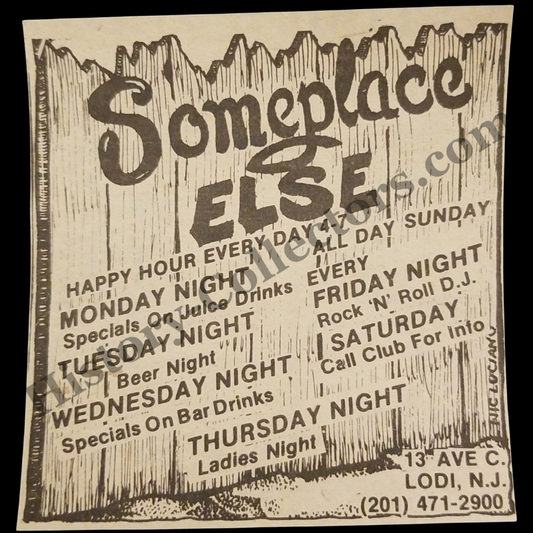 Someplace
ELSE
HAPPY HOUR EVERY DAY 4-7
ALL DAY SUNDAY
MONDAY NIGHT
Specials On Juice Drinks
TUESDAY NIGHT
Beer Night
WEDNESDAY NIGHT
Specials On Bar Drinks
THURSDAY NIGHT
Ladies Night
EVERY
FRIDAY NIGHT
Rock 'N' Roll D.J.
SATURDAY
Call Club For Info
NIC LUCIANO
13 AVE C.
LODI, N.J.
(201) 471-2900
History Collectors.com